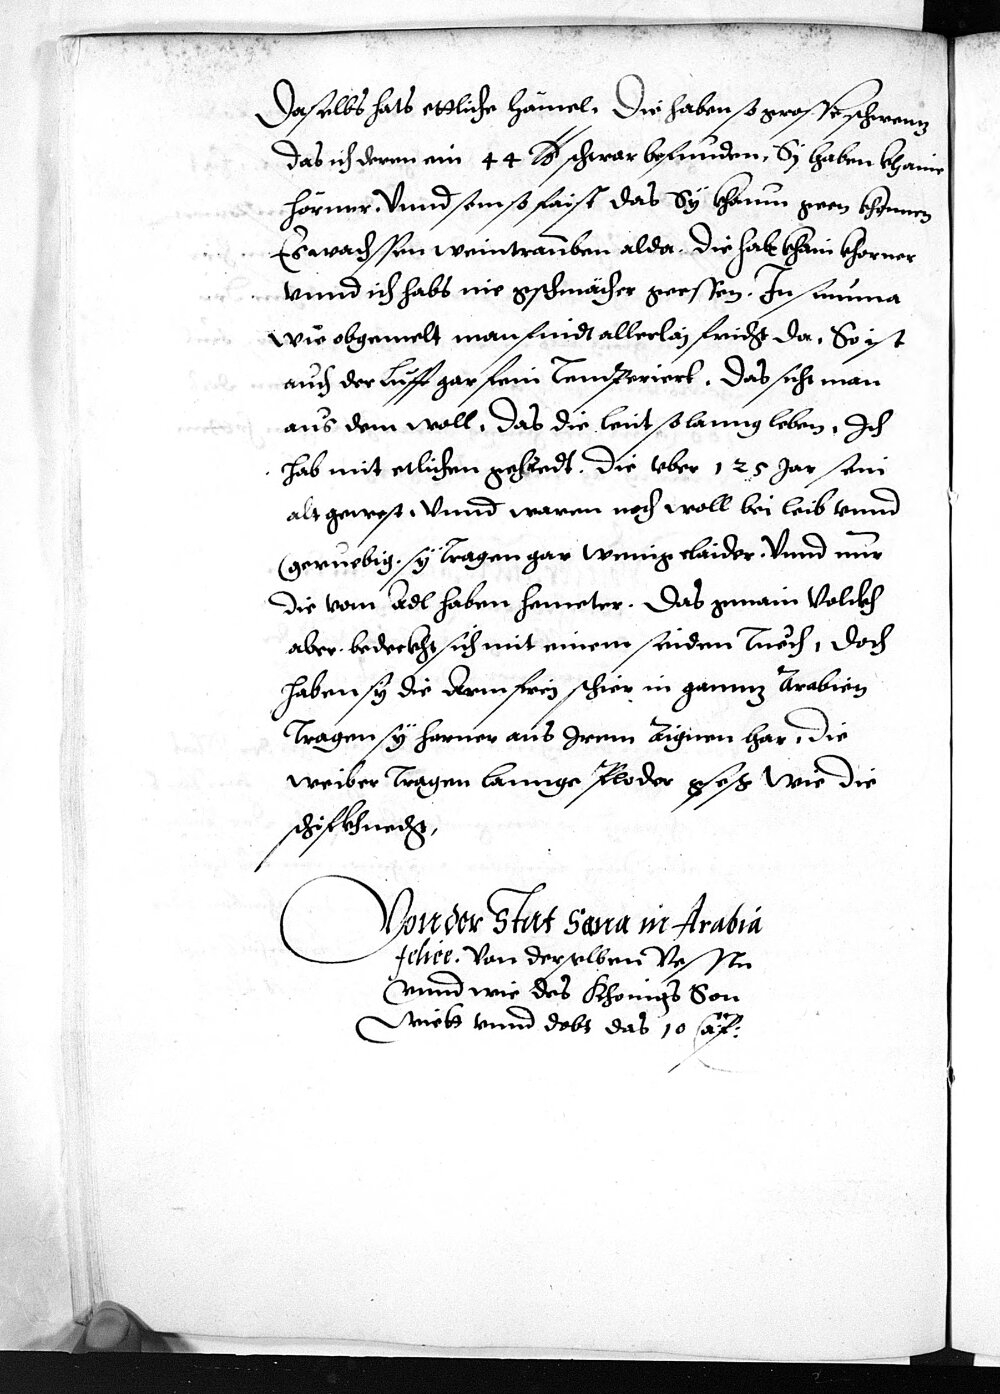 Daselbs hats ettliche hämel. Die haben so grosse schwenz
das ich deren ein 44 lb schwar befunden, Sy haben khaine
hörner. Vnnd sein so faist das Sÿ khaum geen khönnen
Es wachssen weintrauben alda. die hab khain khörner
vnnd ich habs nie gschmächer geessen. In summa
wie obgemelt man findt allerlaj fricht da, So ist
auch der lufft gar fein Temperiert. Das sicht man
aus dem woll, das die leit so lanng leben, Ich
hab mit etlichen geredt. die vber 125 Jar sein
alt gewest. Vnnd waren noch woll bei leib vnnd
geruebig. sÿ Tragen gar wenig claider. Vnnd nur
die vom Adl haben hemeter. Das gmain Volckh
aber bedeckht sich mit einem seiden Tuech, doch
haben sÿ die Arm frej schier in gannz Arabien
Tragen sÿ horner aus Irem Aignen har, die
weiber Tragen lannge Ploder gses wie die
schifkhnecht,
Von der Stat Sana in Arabia
felice. Von derselben Vessn
vnnd wie des Khönigs Son
wiett vnnd dobt das 10 Cap: